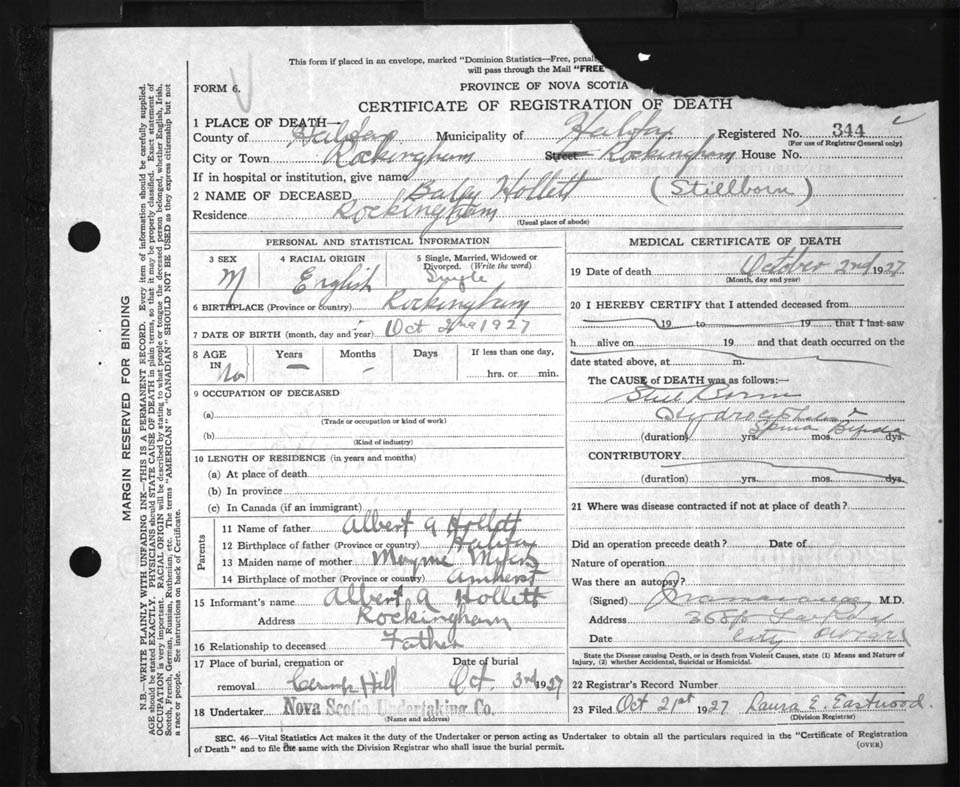 This form if placed in an envelope, marked "Dominion Statistics—Free, penal
will pass through the Mail "FREE
FORM 6.
PROVINCE OF NOVA SCOTIA
CERTIFICATE OF REGISTRATION OF DEATH
1 PLACE OF DEATH—
County of Halifax Municipality of Halifax Registered No. 344
(For use of Registrar General only)
City or Town Rockingham Street Rockingham House No.
If in hospital or institution, give name
2 NAME OF DECEASED Baby Hollett (Stillborn)
Residence Rockingham
(Usual place of abode)
PERSONAL AND STATISTICAL INFORMATION
3 SEX M
4 RACIAL ORIGIN English
5 Single, Married, Widowed or Divorced. (Write the word) Single
6 BIRTHPLACE (Province or country) Rockingham
7 DATE OF BIRTH (month, day and year) Oct 2nd 1927
8 AGE IN Years Months Days If less than one day,
No — – hrs. or min.
9 OCCUPATION OF DECEASED
(a)
(Trade or occupation or kind of work)
(b)
(Kind of industry)
10 LENGTH OF RESIDENCE (in years and months)
(a) At place of death
(b) In province
(c) In Canada (if an immigrant)
Parents
11 Name of father Albert A Hollett
12 Birthplace of father (Province or country) Halifax
13 Maiden name of mother
14 Birthplace of mother (Province or country) Amherst
15 Informant's name Albert A Hollett
Address Rockingham
16 Relationship to deceased Father
17 Place of burial, cremation or Date of burial
removal Camp Hill Oct. 3rd 1927
18 Undertaker Nova Scotia Undertaking Co.
(Name and address)
MEDICAL CERTIFICATE OF DEATH
19 Date of death October 2nd 1927
(Month, day and year)
20 I HEREBY CERTIFY that I attended deceased from
19 to 19 that I last saw
h alive on 19 and that death occurred on the
date stated above, at m.
The CAUSE of DEATH was as follows:—
Still Born
Hydrocephalus
Spina Bifida
(duration) yrs. mos. dys.
CONTRIBUTORY
(duration) yrs. mos. dys.
21 Where was disease contracted if not at place of death?
Did an operation precede death? Date of
Nature of operation
Was there an autopsy?
(Signed) M.D.
Address
Date City
State the Disease causing Death, or in death from Violent Causes, state (1) Means and Nature of
Injury, (2) whether Accidental, Suicidal or Homicidal.
22 Registrar's Record Number
23 Filed Oct 21st 1927 Laura E. Eastwood.
(Division Registrar)
SEC. 46—Vital Statistics Act makes it the duty of the Undertaker or person acting as Undertaker to obtain all the particulars required in the "Certificate of Registration
of Death" and to file the same with the Division Registrar who shall issue the burial permit.
(OVER)
MARGIN RESERVED FOR BINDING
N.B.—WRITE PLAINLY WITH UNFADING INK—THIS IS A PERMANENT RECORD. Every item of information should be carefully supplied.
AGE should be stated EXACTLY. PHYSICIANS should STATE CAUSE OF DEATH in plain terms, so that it may be properly classified. Exact statement of
OCCUPATION is very important. RACIAL ORIGIN will be described by stating to what people or tongue the deceased person belonged, whether English, Irish,
Scotch, French, German, Russian, Ruthenian, etc. The terms "AMERICAN" or "CANADIAN" SHOULD NOT BE USED as they express citizenship but not
a race or people. See instructions on back of Certificate.